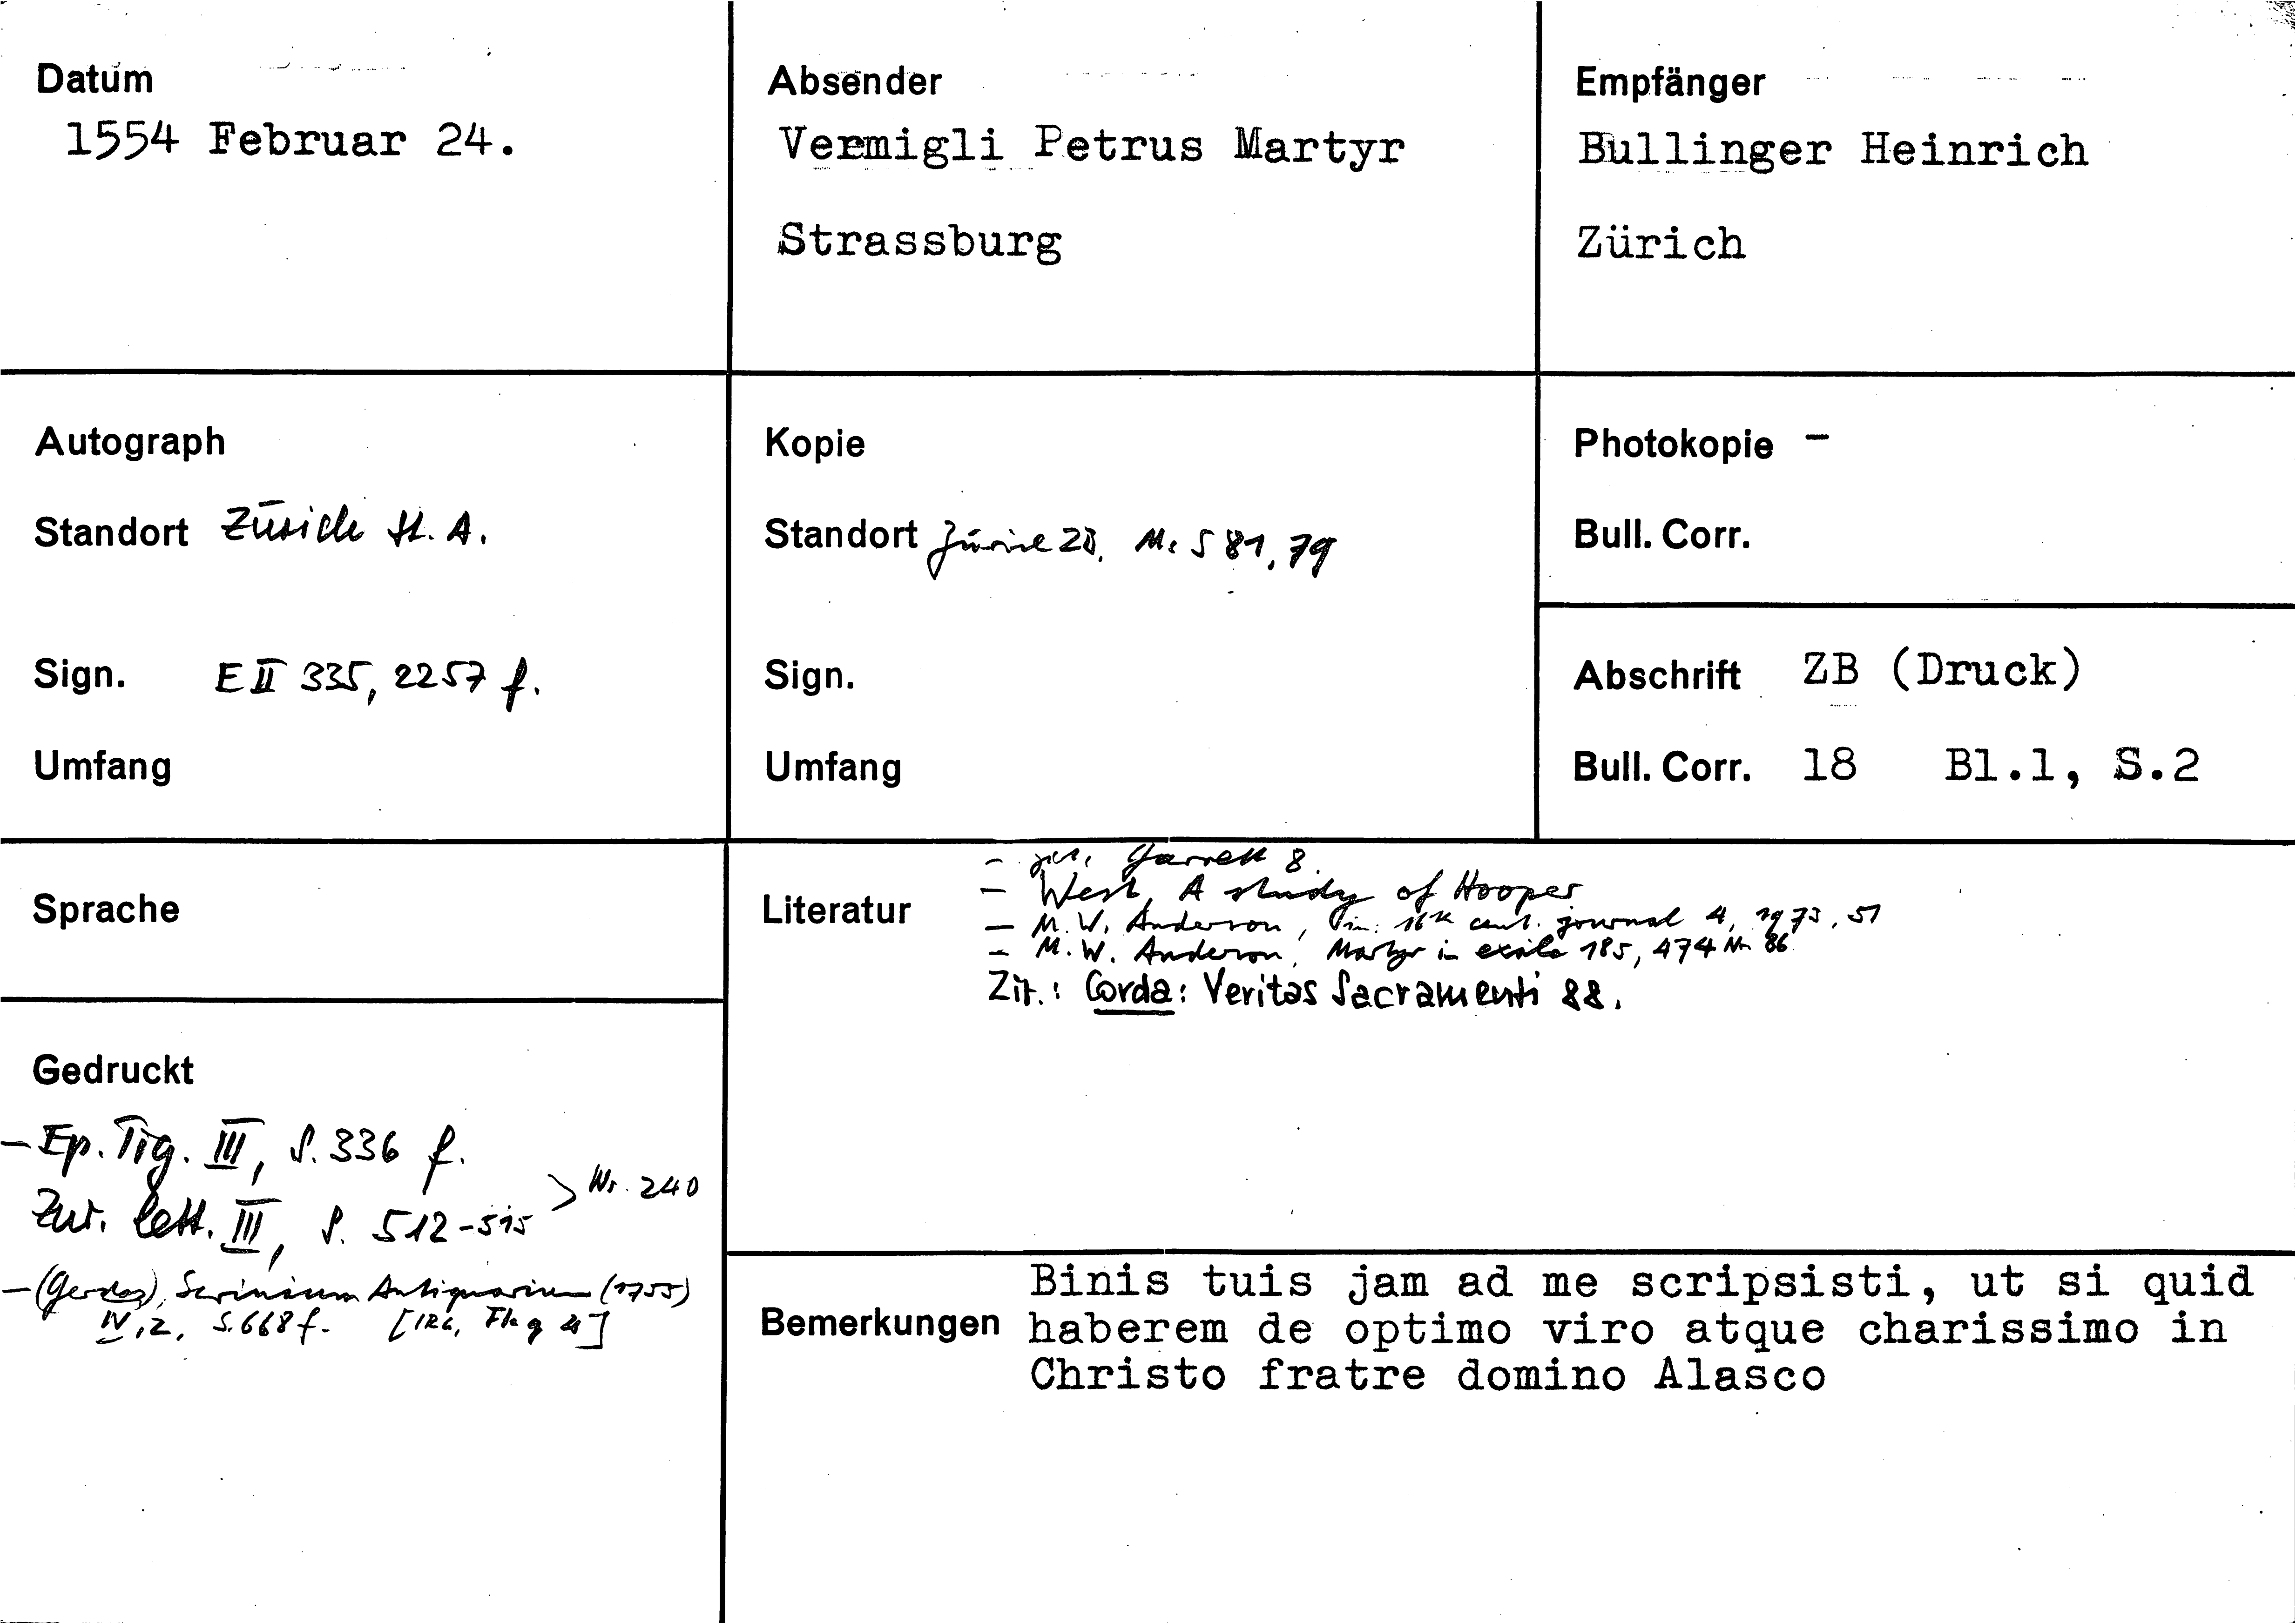 Datum
1554 Februar 24.
Absender
Vermigli Petrus Martyr
Strassburg
Empfänger
Bullinger Heinrich
Zürich
Autograph
Standort Zürich St. A.
Sign. E II 335, 2257 f.
Umfang
Kopie
Standort Zürich ZB, Ms S 81, 79
Sign.
Umfang
Photokopie -
Bull. Corr.
Abschrift ZB (Druck)
Bull. Corr. 18 Bl.1, S.2
Sprache
Gedruckt
- Ep. Tig. III, S. 336 f.
Zur. lett. III, S. 512-515 > Nr. 240
- (Gerdes), Scrinium Antiquarium (1755)
IV, 2, S. 668 f.
Literatur
- zit. Garrett 8.
- West, A study of Hooper
- M. W. Anderson, in: 16th cent. journal 4, 1973, 51
- M. W. Anderson, Martyr in exile 185, 474 Nr. 86.
Zit.: Corda: Veritas Sacramenti 88.
Bemerkungen
Binis tuis jam ad me scripsisti, ut si quid
haberem de optimo viro atque charissimo in
Christo fratre domino Alasco